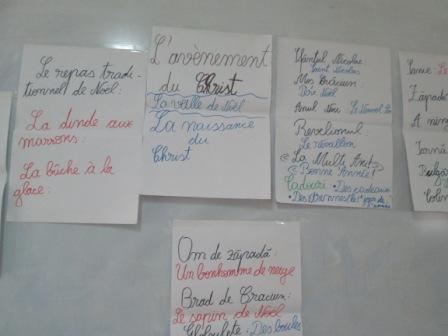 Le repas tradi-
tionnel de Noël:
La dinde aux
marrons:
La bûche à la
glace:
L'avènement
du Christ
La veille de Noël
La naissance
du
Christ
Sfântul Nicolae
Saint Nicolas
Moș Crăciun
Père Noël
Anul Nou: Le Nouvel
Revelionul:
Le réveillon
La Mulți Ani!
Bonne Année!
Cadouri: Des cadeaux
Des étrennes
Zăpadă
A nin
Iarnă
Om de zăpadă:
Un bonhomme de neige
Brad de Crăciun:
Le sapin de Noël
Globulețe: Des boules